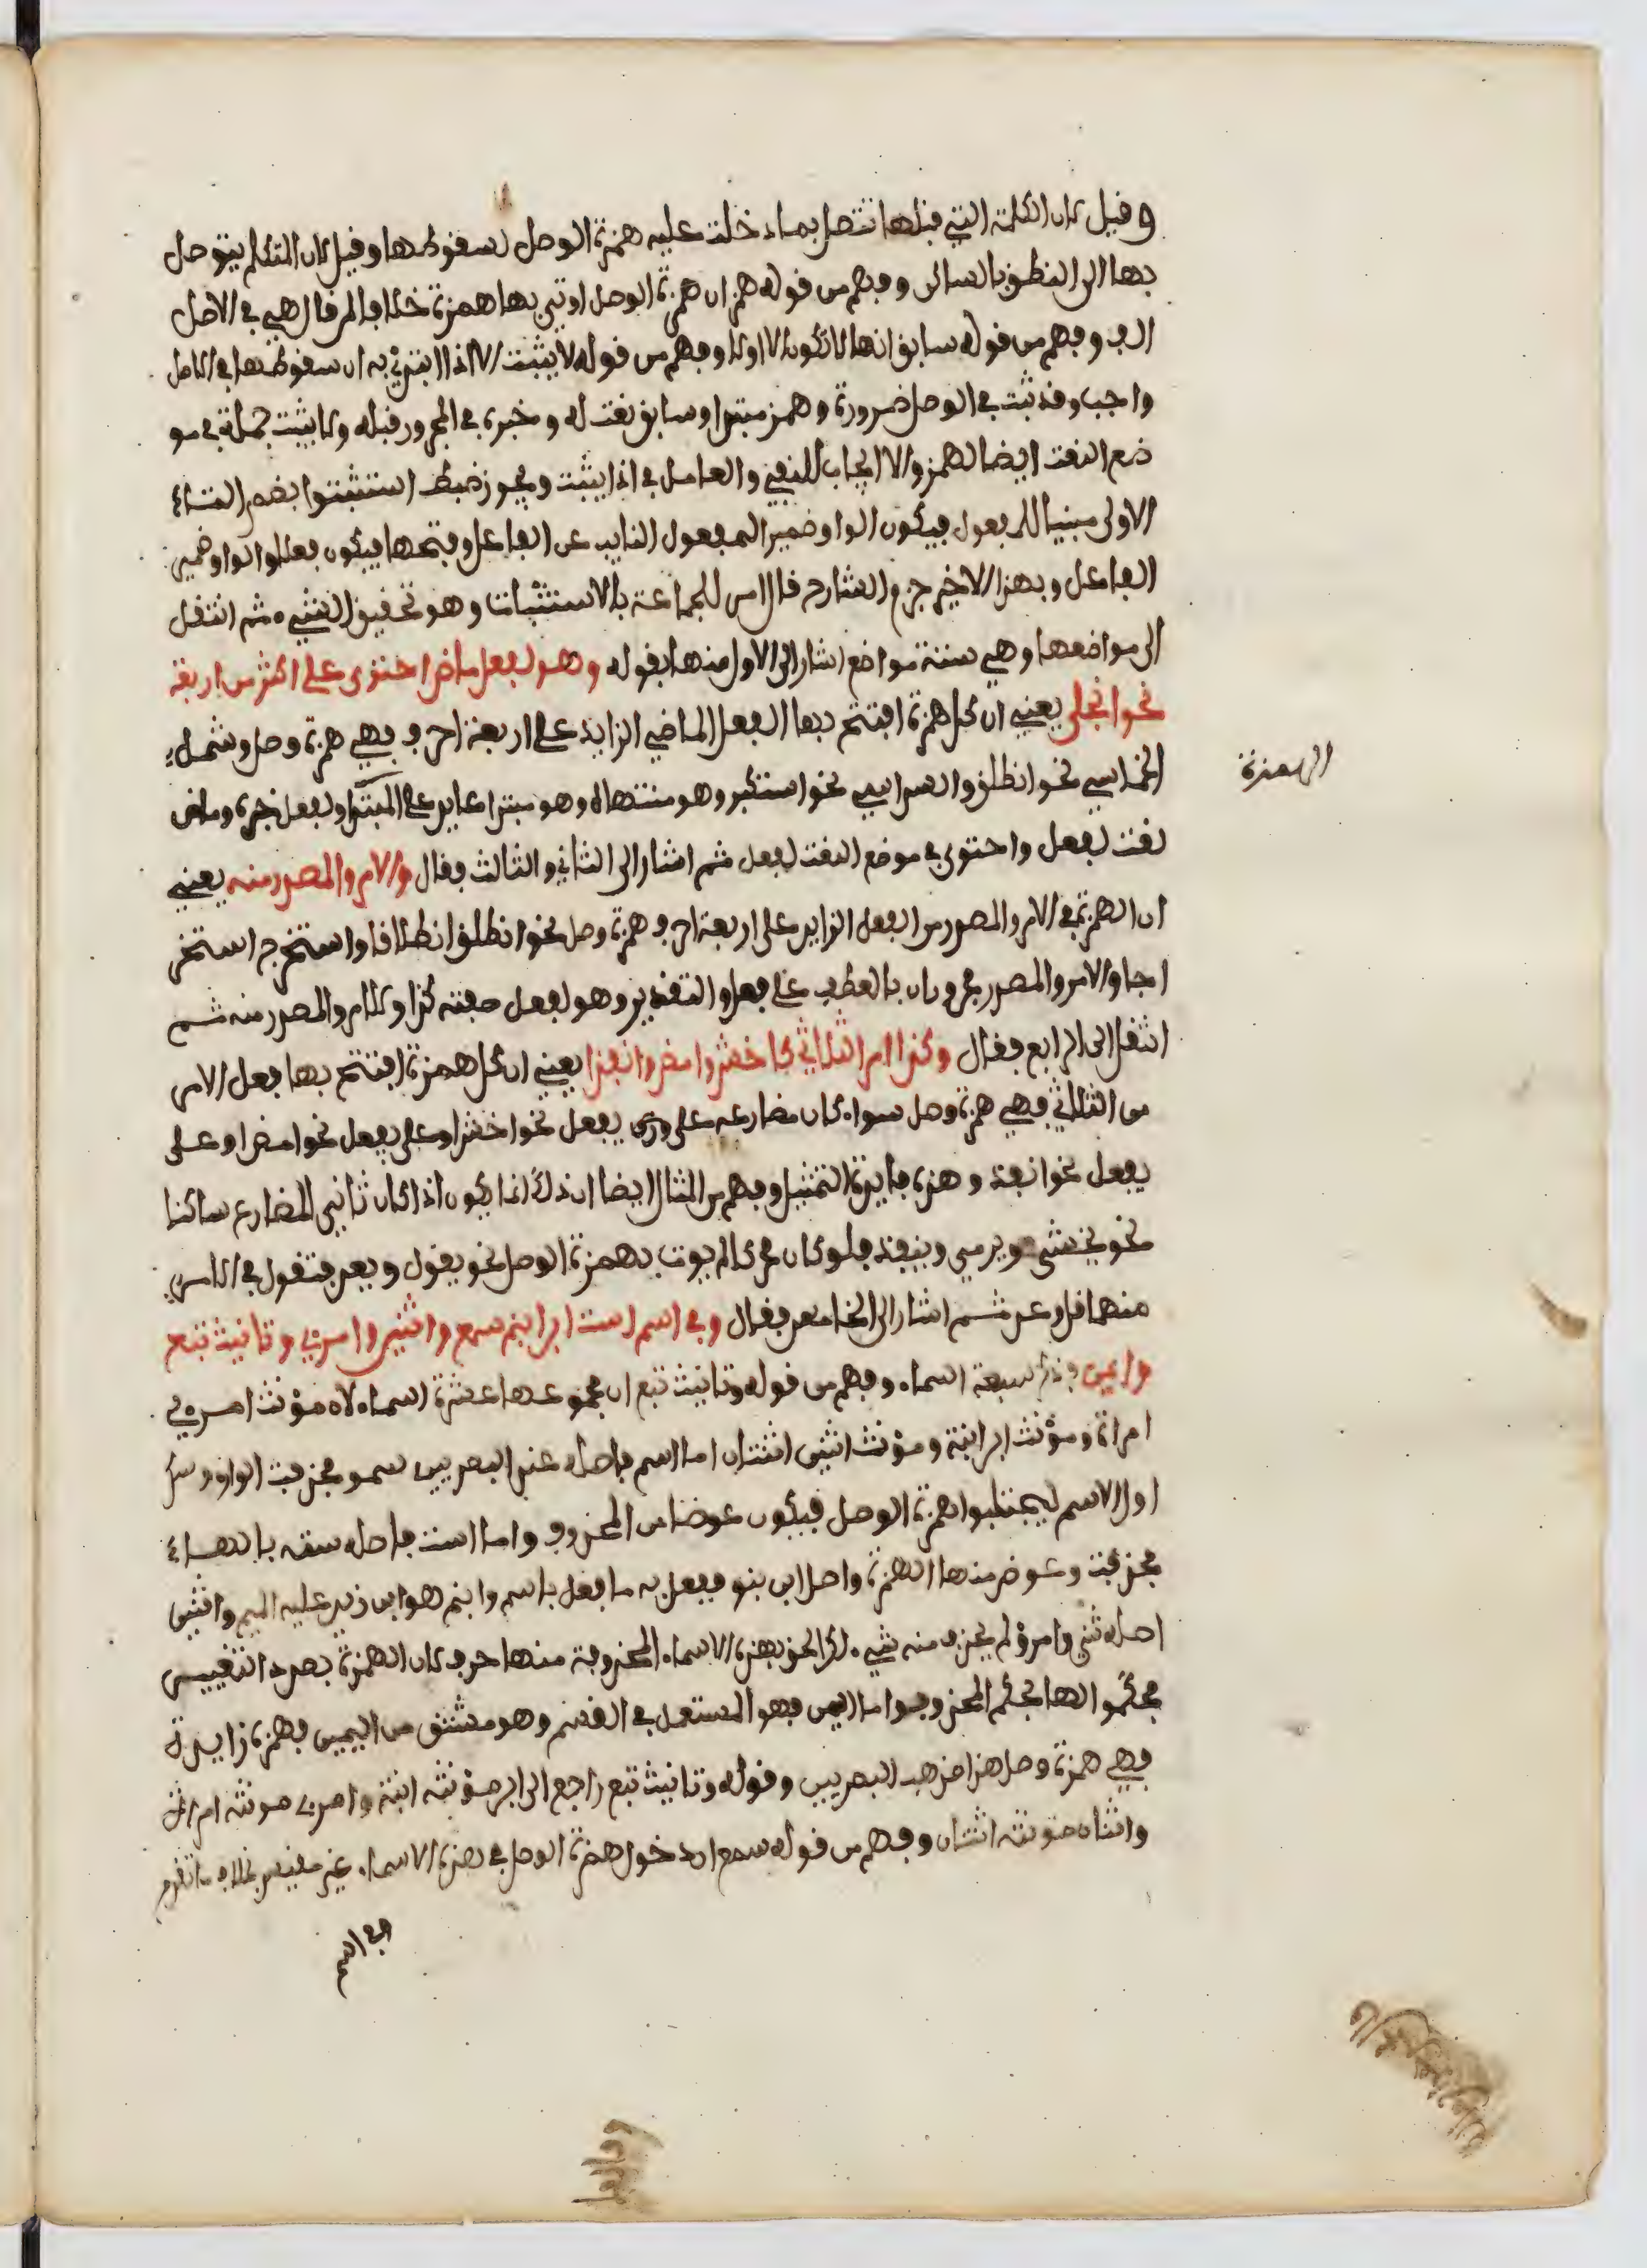 وقيل لان الكلمة التي قبلها تتصل بما دخلت عليه همزة الوصل لسقوطها وقيل لان المتكلم يتوصل
بها الى النطق بالساكن وفهم من قوله همز ان همزة الوصل اوتي بها همزة خلافا لمن قال هي في الاصل
الف وفهم من قوله سابق انها لا تكون الا اولا وفهم من قوله لا يثبت الا اذا ابتدي به ان سقوطها في الاصل
واجب وقد ثبت في الوصل ضرورة وهمز مبتدا وسابق نعت له وخبره في المجرور قبله ولا يثبت جملة في مو
ضع النعت ايضا لهمز والا ايجاب للنفي والعامل في اذا يثبت ويجوز ضبط استثبتوا بضم التاء
الاولى مبنيا للمفعول فيكون الواو ضمير المفعول النايب عن الفاعل وفتحها فيكون فعلا والواو ضمير
الفاعل وبهذا الاخير جزم الشارح قال امر للجماعة بالاستثبات وهو تحقيق الشيء ثم انتقل
الى مواضعها وهي ستة مواضع اشار الى الاول منها بقوله وهو لفعل ماض احتوى على اكثر من اربعة
نحو انجلى يعني ان كل همزة افتتح بها الفعل الماضي الزايد على اربعة احرف فهي همزة وصل وشمل
الخماسي نحو انطلق والسداسي نحو استكبر وهو منتهاه وهو مبتدا عايد على المبتدا ولفعل خبره وماض
نعت لفعل واحتوى في موضع النعت لفعل ثم اشار الى الثاني والثالث فقال والامر والمصدر منه يعني
ان الهمزة في الامر والمصدر من الفعل الزايد على اربعة احرف همزة وصل نحو انطلق انطلاقا واستخرج استخر
اجا والامر والمصدر مجروران بالعطف على فعل والتقدير وهو لفعل صفته كذا وللامر والمصدر منه ثم
انتقل الى الرابع فقال وكذا امر الثلاثي كاخش وامض وانفذا يعني ان كل همزة افتتح بها فعل الامر
من الثلاثي فهي همزة وصل سواء كان مضارعه على وزن يفعل نحو اخش او على يفعل نحو امض او على
يفعل نحو انفذ وهذه فايدة التمثيل وفهم من المثال ايضا ان ذلك انما يكون اذا كان ثاني المضارع ساكنا
نحو يخشى ويرمي وينفذ فلو كان محركا لم يوت بهمزة الوصل نحو يقول ويعد فتقول في الامر
منهما قل وعد ثم اشار الى الخامس فقال وفي اسم است ابن ابنم سمع واثنين وامرئ وتانيث تبع
وايمن فذكر سبعة اسماء وفهم من قوله وتانيث تبع ان مجموعها عشرة اسماء لان مؤنث امرئ
امراة ومؤنث ابن ابنة ومؤنث اثنين اثنتان اما اسم فاصله عند البصريين سمو فحذفت الواو وسكن
اول الاسم ليجتلبوا همزة الوصل فيكون عوضا من المحذوف واما است فاصله سته بالهاء
فحذفت وعوض منها الهمزة واصل ابن بنو ففعل به ما فعل باسم وابنم هو ابن زيد عليه الميم واثنين
اصله ثني وامرؤ لم يحذف منه شيء لكن الحق بهذه الاسماء المحذوفة منها حرف لان الهمزة بصدد التغيير
فحكموا لها بحكم المحذوف واما ايمن فهو المستعمل في القسم وهو مشتق من اليمين فهمزته زايدة
فهي همزة وصل هذا مذهب البصريين وقوله وتانيث تبع راجع الى ابن مؤنثه ابنة وامرئ مونثه امراة
واثنان مؤنثه اثنتان وفهم من قوله سمع ان دخول همزة الوصل في هذه الاسماء غير مقيس بخلاف ما تقدم
الهمزة
في اسم